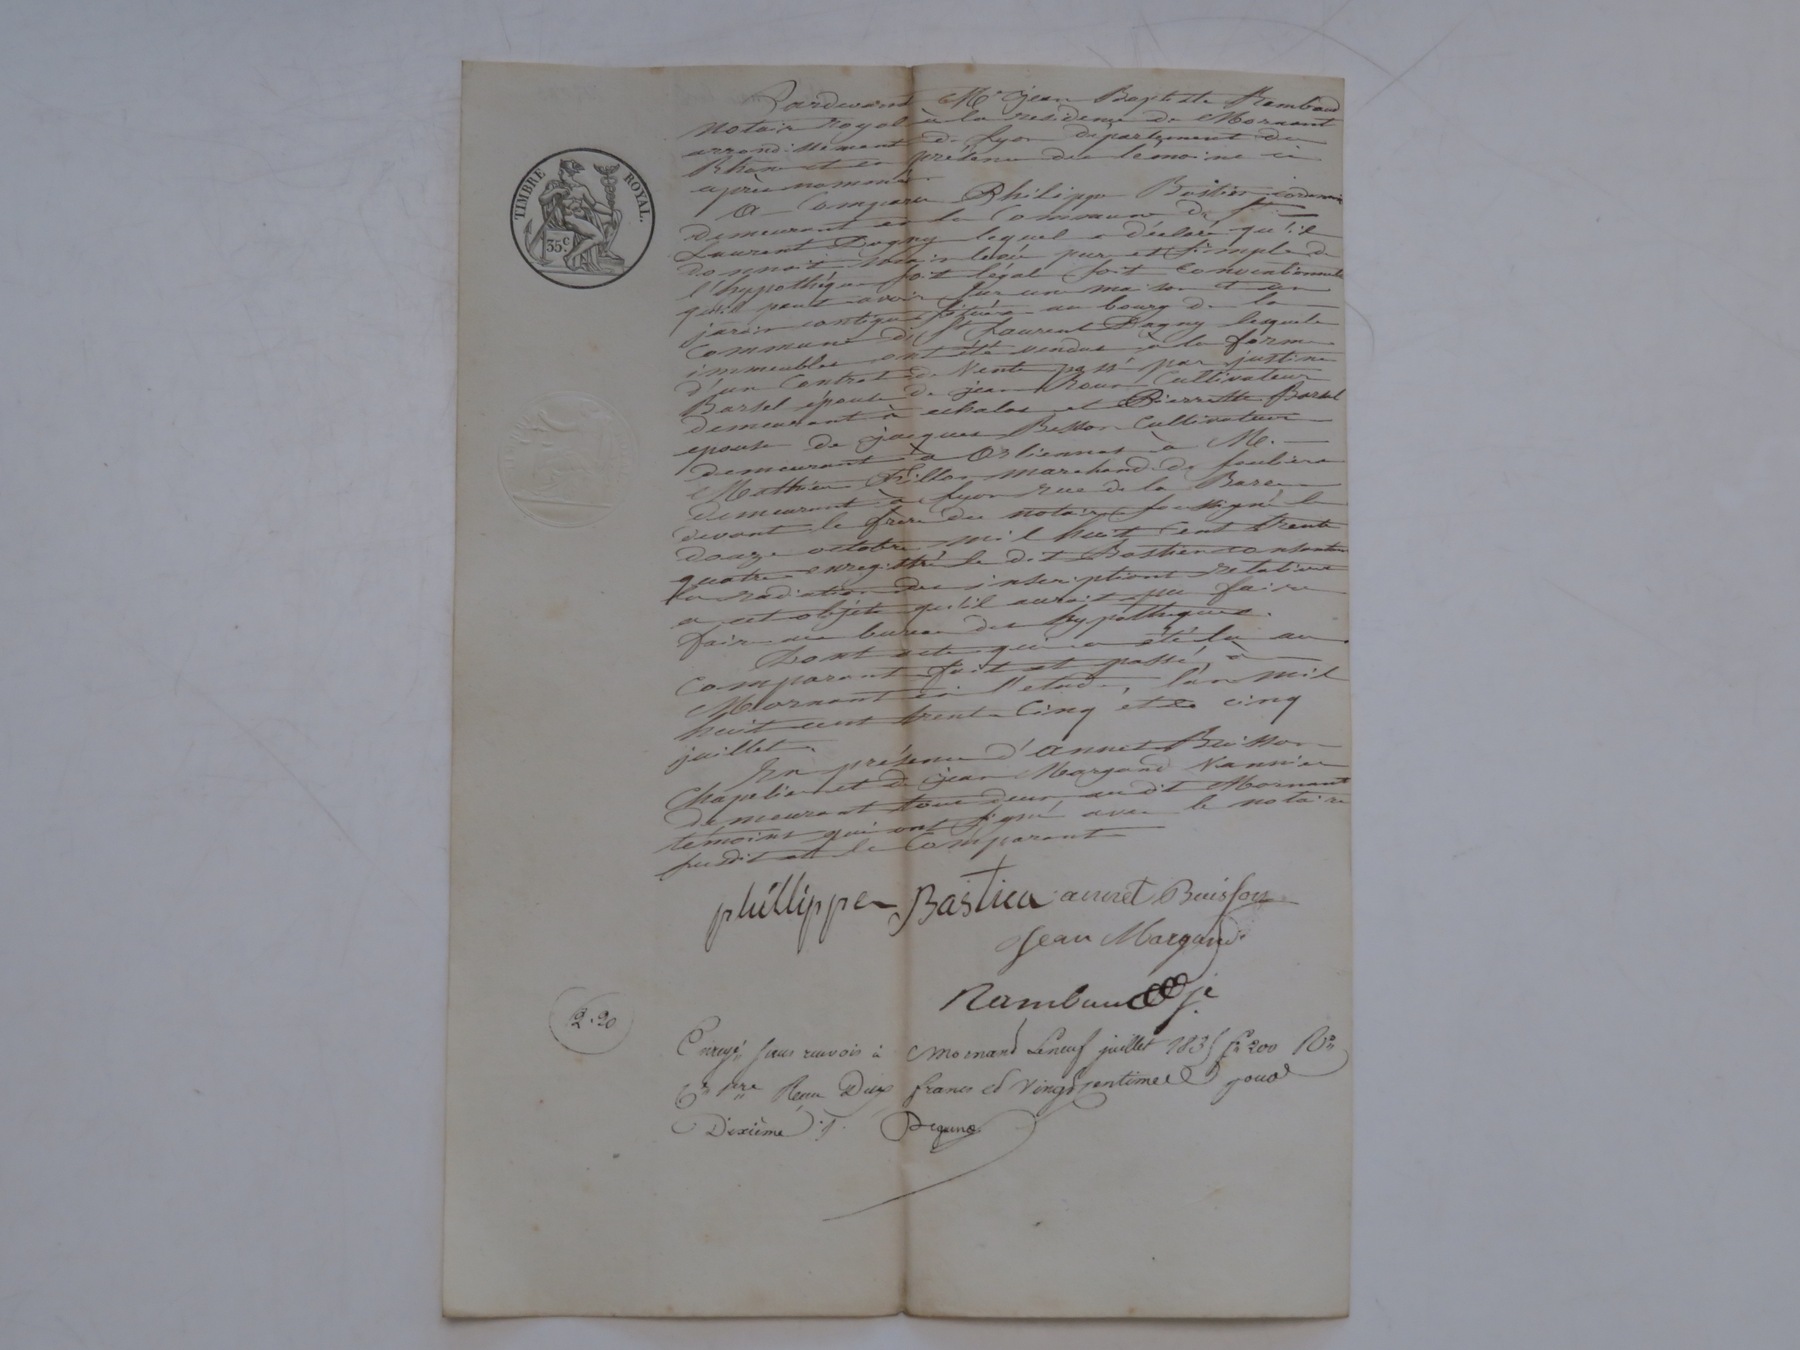 Pardevant Me jean Baptiste Rambaud
notaire royal à la résidence de Mornant
arrondissement de Lyon département du
Rhône et en présence des temoins ci
après nommés
A Comparu Philippe Bastien
demeurant en la Commune de St
Laurent Dagny lequel a déclaré qu'il
donnait main levée pur et simple de
l'hypothèque soit légal soit Conventionnelle
qu'il peut avoir sur une maison et un
jardin contigus situés au bourg de la
Commune de St Laurent Dagny lesquels
immeubles ont été vendus à la forme
d'un Contrat de Vente passé par justine
Barsel épouse de jean Roux Cultivateur
demeurant à echalas et Pierrette Barsel
epouse de jacques Besson Cultivateur
demeurant à Orlienas à M.
Mathieu Fillon marchand de
demeurant à Lyon rue de la Barre
devant le frère du notaire soussigné le
douze octobre mil huit Cent trente
quatre enregistré le dit Bastien consentant
la radiation des inscriptions relatives
a cet objets qu'il aurait pu faire
faire au bureau des hypothèques.
Dont acte qui a été lu au
Comparant fait et passé à
Mornant en l'etude, l'an mil
huit cent trente Cinq et le cinq
juillet.
En présence d'annet Buisson
Chapelier et de jean Margand Vannier
demeurant tous deux au dit Mornant
témoins qui ont signé avec le notaire
susdit et le Comparant
phillippe Bastien annet Buisson
Jean Margand
Rambaud je
TIMBRE ROYAL.
35c.
2.20
Enregé sans renvois à Mornand Le neuf juillet 1835 fo 200 Ro
Ce Reçu Deux francs et Vingt centimes
Dixième